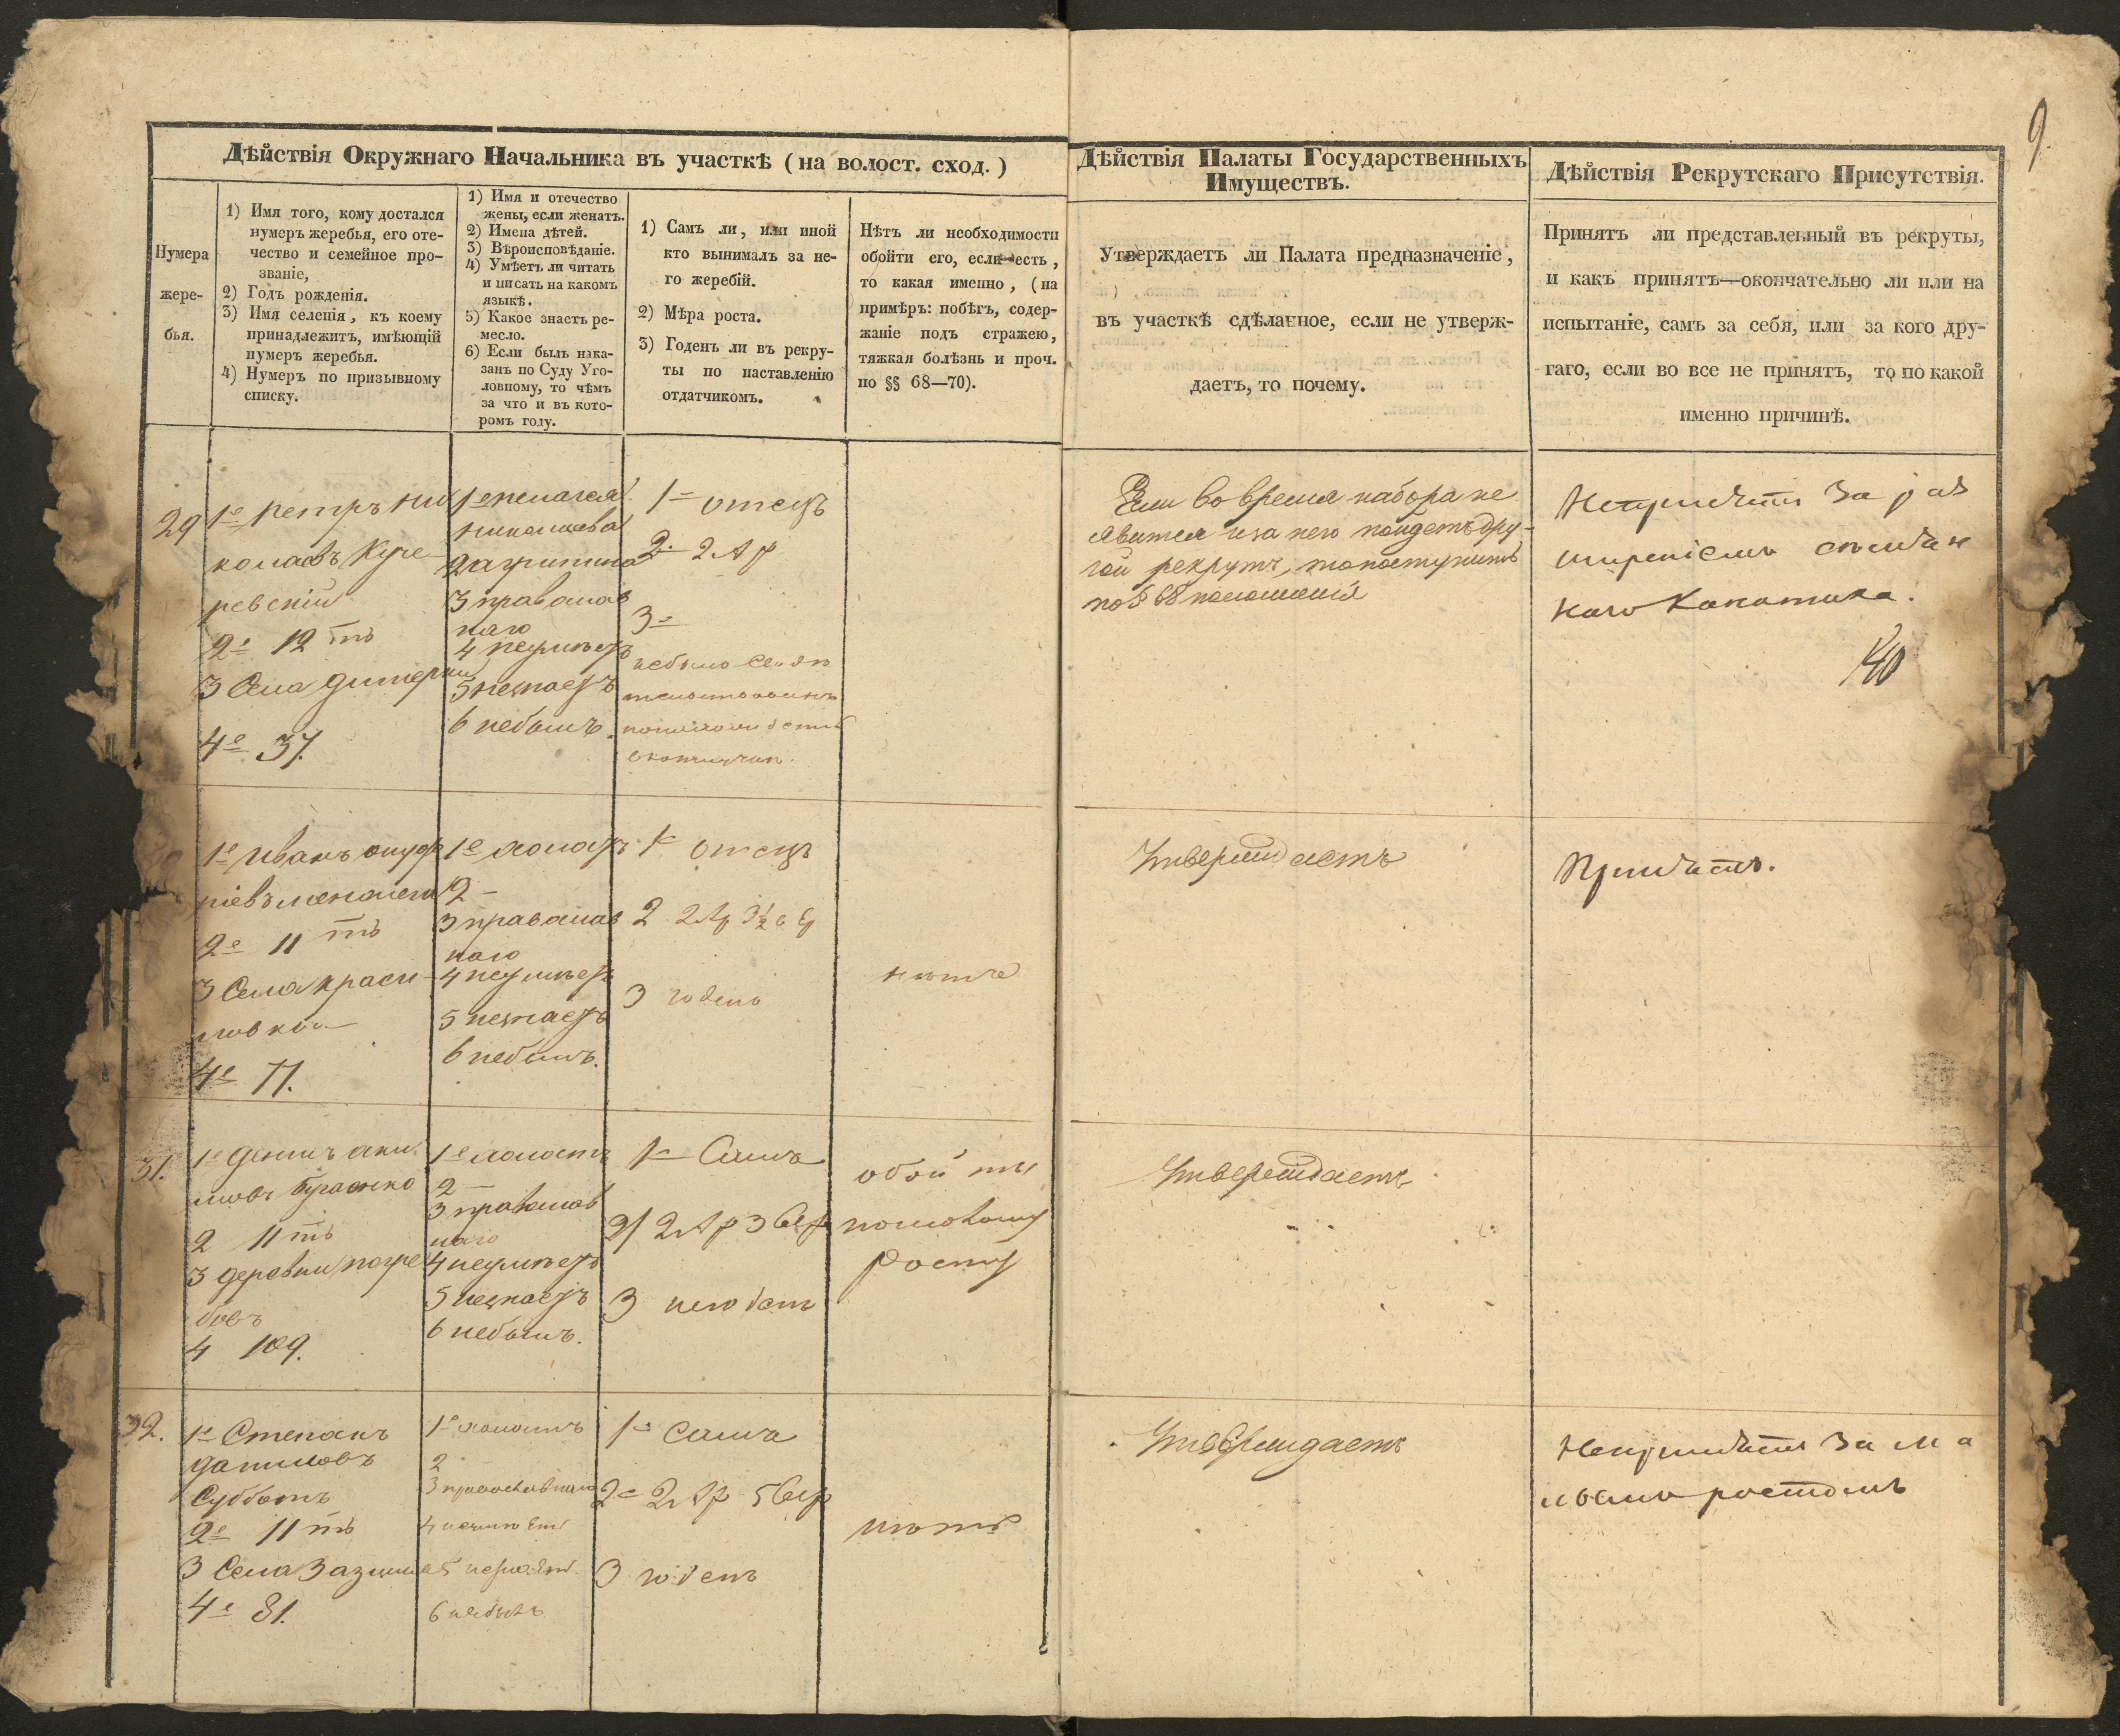 9.
Дѣйствія Окружнаго Начальника въ участкѣ (на волост. сход.)
Нумера
жере-
бья.
1) Имя того, кому достался
нумеръ жеребья, его оте-
чество и семейное про-
званіе,
2) Годъ рожденія.
3) Имя селенія, къ коему
принадлежитъ, имѣющій
нумеръ жеребья.
4) Нумеръ по призывному
списку.
1) Имя и отечество
жены, если женатъ.
2) Имена дѣтей.
3) Вѣроисповѣданіе.
4) Умѣетъ ли читать
и писать на какомъ
языкѣ.
5) Какое знаетъ ре-
месло.
6) Если былъ нака-
занъ по Суду Уго-
ловному, то чѣмъ
за что и въ кото-
ромъ году.
1) Самъ ли, или иной
кто вынималъ за не-
го жеребій.
2) Мѣра роста.
3) Годенъ ли въ рекру-
ты по наставленію
отдатчикомъ.
Нѣтъ ли необходимости
обойти его, если есть,
то какая именно, (на
примѣръ: побѣгъ, содер-
жаніе подъ стражею,
тяжкая болѣзнь и проч.
по §§ 68—70).
Дѣйствія Палаты Государственныхъ
Имуществъ.
Утверждаетъ ли Палата предназначеніе,
въ участкѣ сдѣланное, если не утверж-
даетъ, то почему.
Дѣйствія Рекрутскаго Присутствія.
Принятъ ли представленный въ рекруты,
и какъ принятъ—окончательно ли или на
испытаніе, самъ за себя, или за кого дру-
гаго, если во все не принятъ, то по какой
именно причинѣ.
29
1е петръ ни
колаевъ Куче
ревскій
2е 12 тъ
3 Села дитерки
4е 37.
1е пелагея
николаева
2 агрипина
3 православ
наго
4 неумѣетъ
5 незнаетъ
6 небылъ.
1е отецъ
2е 2 Ар
3е
небыло
Если во время набора не
явится и за него пойдетъ дру-
гой рекрутъ, то поступить
по § 68 положенія
Непринятъ за рас
ширеніемъ
наго Канатика.
40
1е Иванъ онуф
ріевъ
2е 11 тъ
3 Села краси
ловки
4е 77.
1е холостъ
2 —
3 православ
наго
4 неумѣетъ
5 незнаетъ
6 небылъ.
1е отецъ
2 2 Ар 3½ ве
3 годенъ
нѣтъ
Утверждаетъ
Принятъ.
31.
1е Денисъ аки
мовъ Брагинко
2 11 тъ
3 деревни погре
бовъ
4 109.
1е холостъ
2 —
3 православ
наго
4 неумѣетъ
5 незнаетъ
6 небылъ.
1е Самъ
2 2 Ар 3 вер
3 негоденъ
обойти
по малому
росту
Утверждаетъ
32.
1е Степанъ
даниловъ
Субботъ
2е 11 тъ
3 Села Зазимья
4е 81.
1е холостъ
2
3 православнаго
4 неумѣетъ
5 незнаетъ.
6 небылъ
1е Самъ
2е 2 Ар 5 вер
3 годенъ
нѣтъ
Утверждаетъ
Непринятъ за ма
лымъ ростомъ